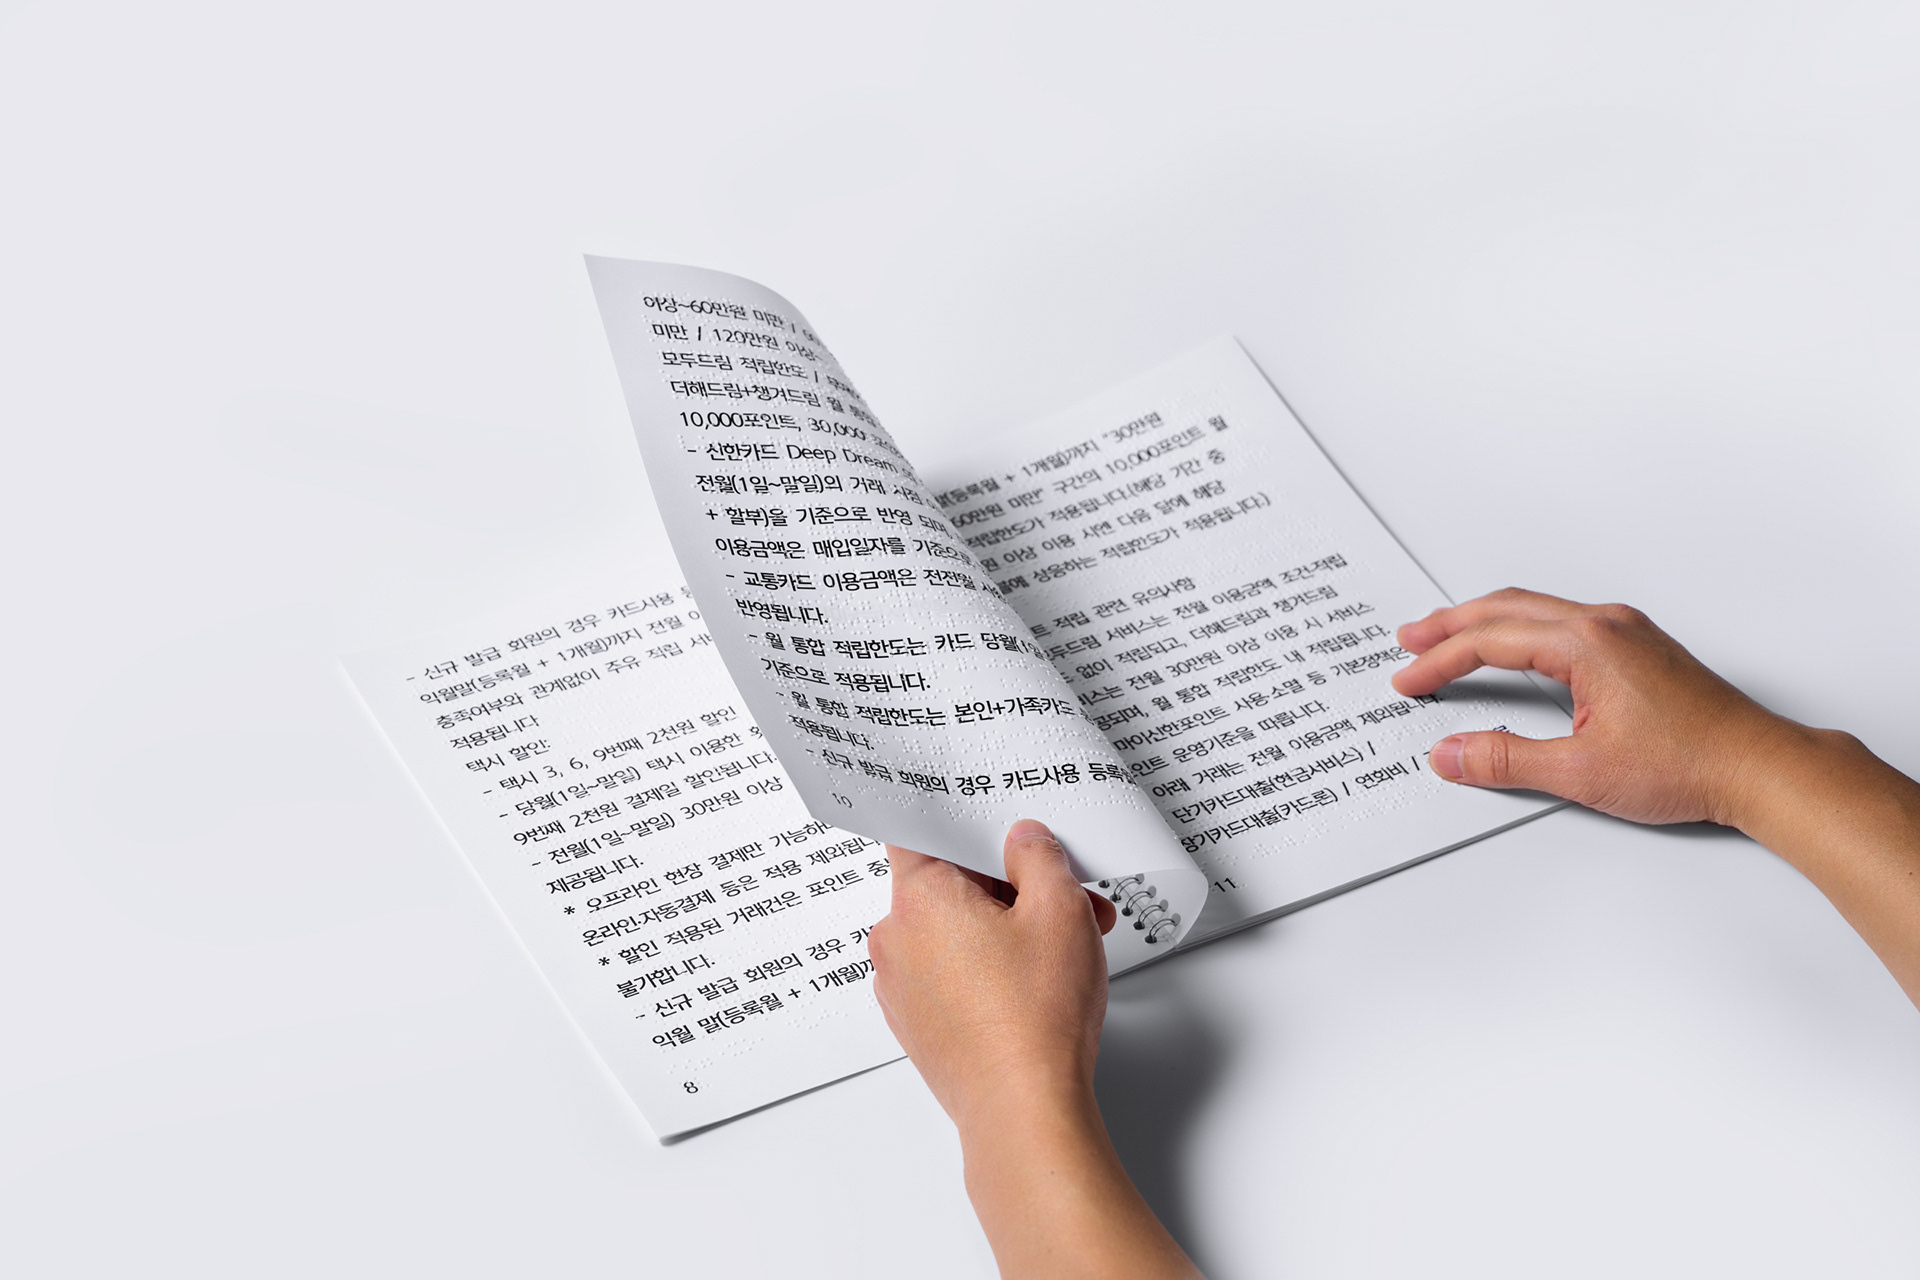 - 신규 발급 회원의 경우 카드사용
익월말(등록월 + 1개월)까지 전월
충족여부와 관계없이 주유 적립
적용됩니다
택시 할인:
- 택시 3, 6, 9번째 2천원 할인
- 당월(1일~말일) 택시 이용한
9번째 2천원 결제일 할인됩니다.
- 전월(1일~말일) 30만원 이상
제공됩니다.
* 오프라인 현장 결제만 가능하
온라인·자동결제 등은 적용 제외됩니
* 할인 적용된 거래건은 포인트
불가합니다.
- 신규 발급 회원의 경우
익월 말(등록월 + 1개월)
8
이상~60만원 미만 /
미만 / 120만원 이상~
모두드림 적립한도 /
더해드림+챙겨드림 월
10,000포인트, 30,000
- 신한카드 Deep Dream
전월(1일~말일)의 거래 시점
+ 할부)을 기준으로 반영 되며
이용금액은 매입일자를 기준으로
- 교통카드 이용금액은 전전월
반영됩니다.
- 월 통합 적립한도는 카드 당월(1일
기준으로 적용됩니다.
- 월 통합 적립한도는 본인+가족카드
적용됩니다.
- 신규 발급 회원의 경우 카드사용 등록
10
(등록월 + 1개월)까지 "30만원
60만원 미만" 구간의 10,000포인트 월
적립한도가 적용됩니다.(해당 기간 중
원 이상 이용 시엔 다음 달에 해당
상응하는 적립한도가 적용됩니다.)
적립 관련 유의사항
서비스는 전월 이용금액 조건·적립
없이 적립되고, 더해드림과 챙겨드림
전월 30만원 이상 이용 시 서비스
월 통합 적립한도 내 적립됩니다.
마이신한포인트 사용·소멸 등 기본정책은
운영기준을 따릅니다.
아래 거래는 전월 이용금액 제외됩니다.
단기카드대출(현금서비스) /
장기카드대출(카드론) / 연회비 /
11